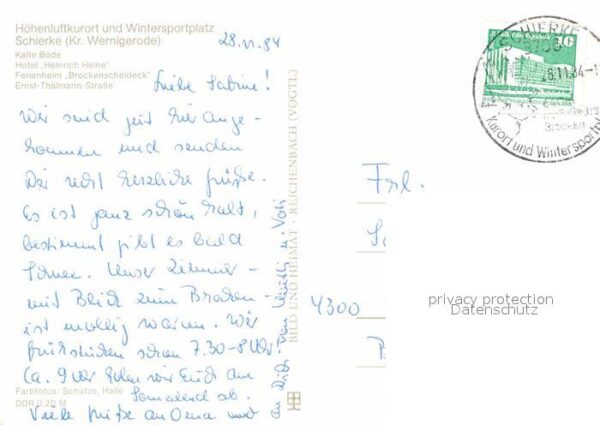 Höhenluftkurort und Wintersportplatz
Schierke (Kr. Wernigerode)
Kalte Bode
Hotel „Heinrich Heine"
Ferienheim „Brockenscheideck"
Ernst-Thälmann-Straße
28.11.84
Liebe Sabine!
Wir sind jetzt hier ange-
kommen und senden
Dir recht herzliche Grüße.
Es ist ganz schön kalt,
bestimmt gibt es bald
Schnee. Unser Zimmer -
mit Blick zum Brocken -
ist mollig warm. Wir
frühstücken schon 7.30-8 Uhr!
Ca. 9 Uhr holen wir Euch am
Sonnabend ab.
Viele Grüße an Oma und
an Dich von Mutti u. Vati
Farbfotos: Schütze, Halle
DDR 0,20 M
BILD UND HEIMAT · REICHENBACH (VOGTL)
SCHIERKE
3703
10
28.11.84
Brocken
Kurort und Wintersportpl
Frl.
4300
privacy protection
Datenschutz